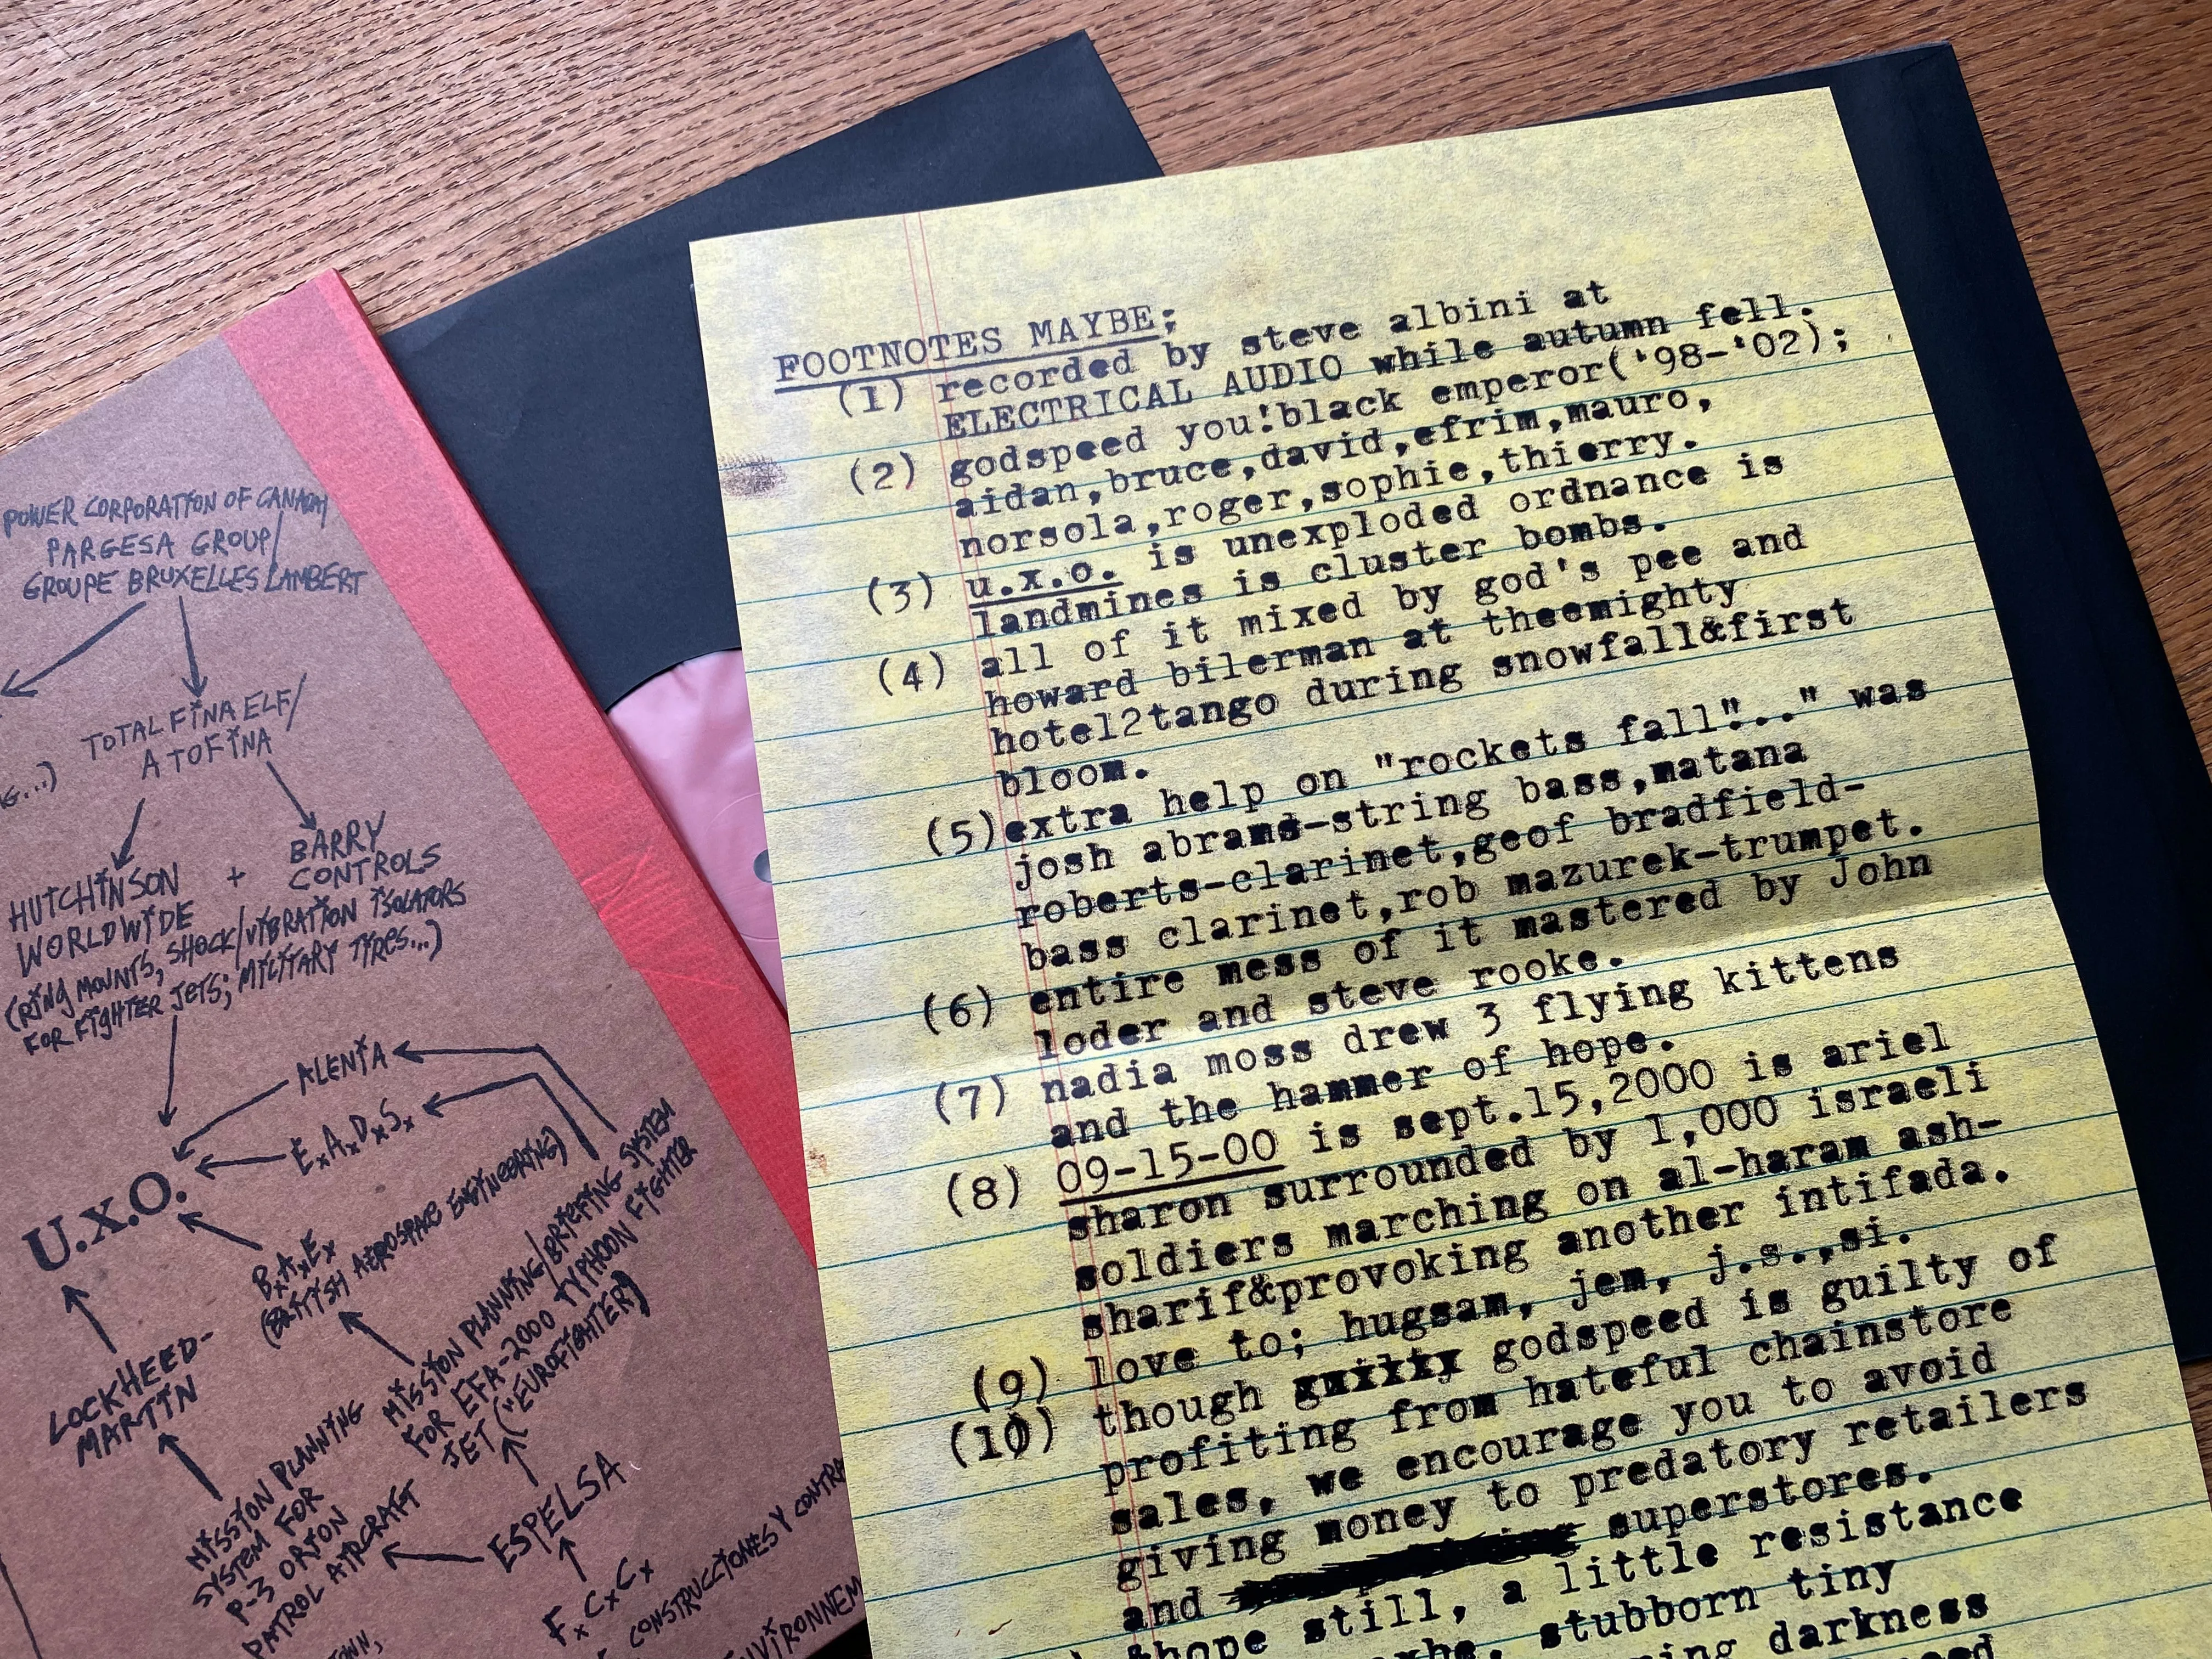 POWER CORPORATION OF CANADA/
PARGESA GROUP/
GROUPE BRUXELLES LAMBERT
TOTAL FINA ELF/
ATOFINA
G...)
HUTCHINSON
WORLDWIDE
+
BARRY
CONTROLS
(RING MOUNTS, SHOCK/VIBRATION ISOLATORS
FOR FIGHTER JETS; MILITARY TIRES...)
ALENIA
ExAxDxSx
U.X.O.
BxAxEx
(BRITISH AEROSPACE ENGINEERING)
LOCKHEED-
MARTIN
MISSION PLANNING/BRIEFING SYSTEM
FOR EFA-2000 TYPHOON FIGHTER
JET ("EUROFIGHTER)
MISSION PLANNING
SYSTEM FOR
P-3 ORION
PATROL AIRCRAFT
ESPELSA
FxCxCx
CONSTRUCCIONES Y CONTRA
FOOTNOTES MAYBE;
(1) recorded by steve albini at
ELECTRICAL AUDIO while autumn fell.
(2) godspeed you!black emperor('98-'02);
aidan,bruce,david,efrim,mauro,
norsola,roger,sophie,thierry.
(3) u.x.o. is unexploded ordnance is
landmines is cluster bombs.
(4) all of it mixed by god's pee and
howard bilerman at theemighty
hotel2tango during snowfall&first
bloom.
(5)extra help on "rockets fall"..." was
josh abrams-string bass,matana
roberts-clarinet,geof bradfield-
bass clarinet,rob mazurek-trumpet.
(6) entire mess of it mastered by John
loder and steve rooke.
(7) nadia moss drew 3 flying kittens
and the hammer of hope.
(8) 09-15-00 is sept.15,2000 is ariel
sharon surrounded by 1,000 israeli
soldiers marching on al-haram ash-
sharif&provoking another intifada.
(9) love to; hugsam, jem, j.s.,si.
(10) though guilty godspeed is guilty of
profiting from hateful chainstore
sales, we encourage you to avoid
giving money to predatory retailers
and superstores.
&hope still, a little resistance
stubborn tiny
darkness